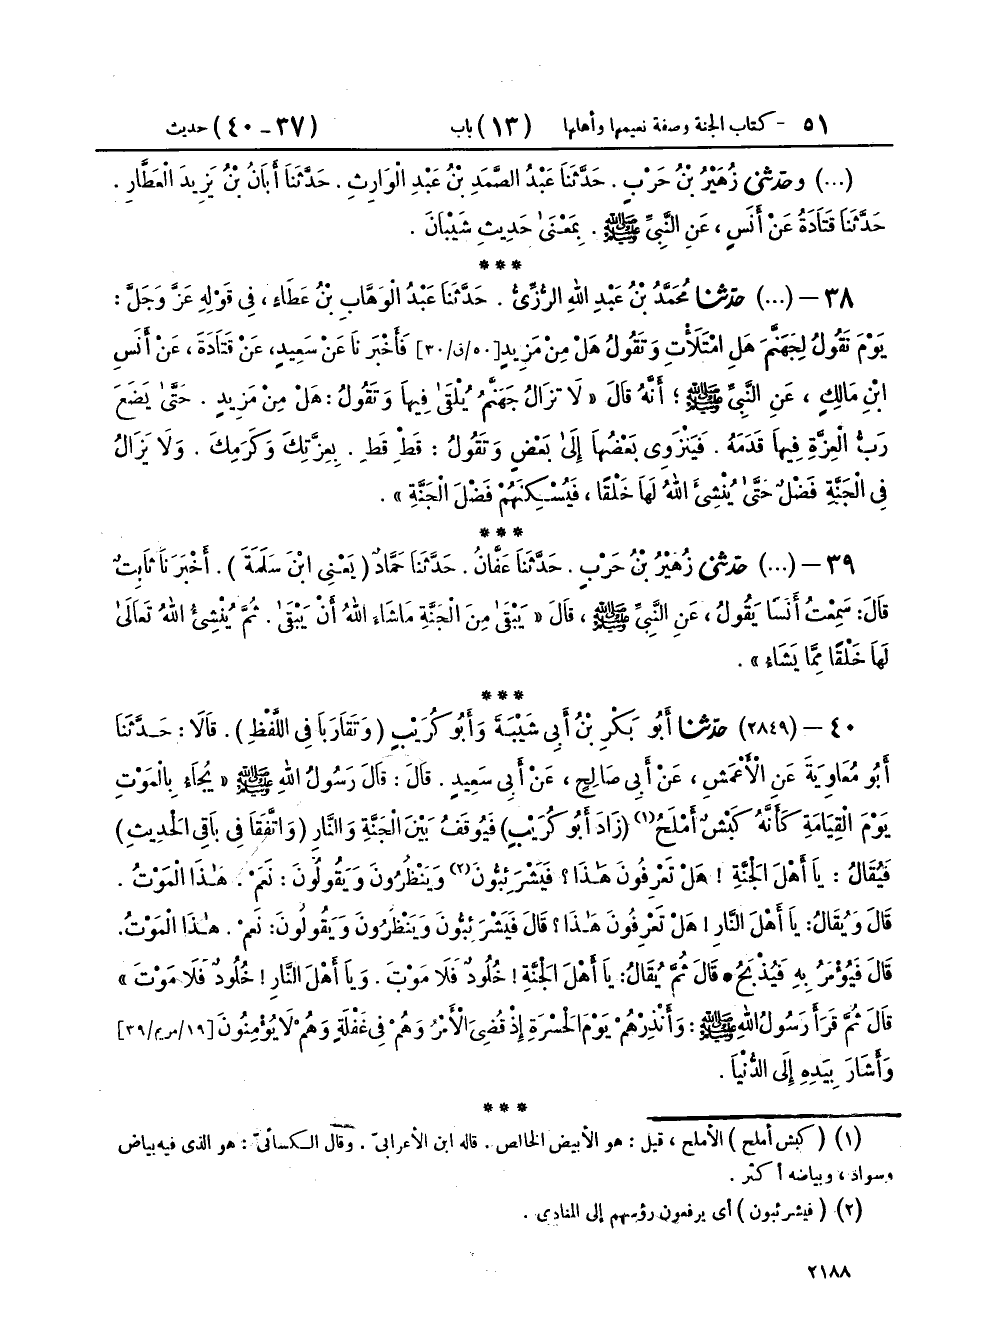 ٥١ - كتاب الجنة وصفة نعيمها وأهلها (١٣) باب (٣٧-٤٠) حديث
(...) وحَدَّثَنِي زُهَيْرُ بْنُ حَرْبٍ . حَدَّثَنَا عَبْدُ الصَّمَدِ بْنُ عَبْدِ الْوَارِثِ . حَدَّثَنَا أَبَانُ بْنُ يَزِيدَ الْعَطَّارِ .
حَدَّثَنَا قَتَادَةُ عَنْ أَنَسٍ ، عَنِ النَّبِيِّ ﷺ . بِمَعْنَىٰ حَدِيثِ شَيْبَانَ .
***
٣٨ – (...) حَدَّثَنَا مُحَمَّدُ بْنُ عَبْدِ اللهِ الرُّزِّيُّ . حَدَّثَنَا عَبْدُ الْوَهَّابِ بْنُ عَطَاءٍ ، فِي قَوْلِهِ عَزَّ وَجَلَّ :
يَوْمَ نَقُولُ لِجَهَنَّمَ هَلِ امْتَلَأْتِ وَتَقُولُ هَلْ مِنْ مَزِيدٍ [٥٠/ق/٣٠] فَأَخْبَرَنَا عَنْ سَعِيدٍ، عَنْ قَتَادَةَ ، عَنْ أَنَسِ
ابْنِ مَالِكٍ ، عَنِ النَّبِيِّ ﷺ ؛ أَنَّهُ قَالَ « لَا تَزَالُ جَهَنَّمُ يُلْقَىٰ فِيهَا وَتَقُولُ : هَلْ مِنْ مَزِيدٍ . حَتَّىٰ يَضَعَ
رَبُّ الْعِزَّةِ فِيهَا قَدَمَهُ . فَيَنْزَوِي بَعْضُهَا إِلَىٰ بَعْضٍ وَتَقُولُ : قَطْ قَطْ . بِعِزَّتِكَ وَكَرَمِكَ . وَلَا يَزَالُ
فِي الْجَنَّةِ فَضْلٌ حَتَّىٰ يُنْشِئَ اللهُ لَهَا خَلْقًا ، فَيُسْكِنَهُمْ فَضْلَ الْجَنَّةِ » .
***
٣٩ – (...) حَدَّثَنِي زُهَيْرُ بْنُ حَرْبٍ . حَدَّثَنَا عَفَّانُ . حَدَّثَنَا حَمَّادٌ ( يَعْنِي ابْنَ سَلَمَةَ ) . أَخْبَرَنَا ثَابِتٌ
قَالَ: سَمِعْتُ أَنَسًا يَقُولُ ، عَنِ النَّبِيِّ ﷺ ، قَالَ « يَبْقَىٰ مِنَ الْجَنَّةِ مَا شَاءَ اللهُ أَنْ يَبْقَىٰ . ثُمَّ يُنْشِئُ اللهُ تَعَالَىٰ
لَهَا خَلْقًا مِمَّا يَشَاءُ » .
***
٤٠ – (٢٨٤٩) حَدَّثَنَا أَبُو بَكْرِ بْنُ أَبِي شَيْبَةَ وَأَبُو كُرَيْبٍ ( وَتَقَارَبَا فِي اللَّفْظِ ) . قَالَا : حَدَّثَنَا
أَبُو مُعَاوِيَةَ عَنِ الْأَعْمَشِ ، عَنْ أَبِي صَالِحٍ ، عَنْ أَبِي سَعِيدٍ . قَالَ : قَالَ رَسُولُ اللهِ ﷺ « يُجَاءُ بِالْمَوْتِ
يَوْمَ الْقِيَامَةِ كَأَنَّهُ كَبْشٌ أَمْلَحُ(١) (زَادَ أَبُو كُرَيْبٍ) فَيُوقَفُ بَيْنَ الْجَنَّةِ وَالنَّارِ (وَاتَّفَقَا فِي بَاقِي الْحَدِيثِ)
فَيُقَالُ : يَا أَهْلَ الْجَنَّةِ ! هَلْ تَعْرِفُونَ هَٰذَا ؟ فَيَشْرَئِبُّونَ(٢) وَيَنْظُرُونَ وَيَقُولُونَ : نَعَمْ . هَٰذَا الْمَوْتُ .
قَالَ وَيُقَالُ: يَا أَهْلَ النَّارِ ! هَلْ تَعْرِفُونَ هَٰذَا ؟ قَالَ فَيَشْرَئِبُّونَ وَيَنْظُرُونَ وَيَقُولُونَ: نَعَمْ . هَٰذَا الْمَوْتُ.
قَالَ فَيُؤْمَرُ بِهِ فَيُذْبَحُ . قَالَ ثُمَّ يُقَالُ: يَا أَهْلَ الْجَنَّةِ ! خُلُودٌ فَلَا مَوْتَ . وَيَا أَهْلَ النَّارِ ! خُلُودٌ فَلَا مَوْتَ »
قَالَ ثُمَّ قَرَأَ رَسُولُ اللهِ ﷺ : وَأَنْذِرْهُمْ يَوْمَ الْحَسْرَةِ إِذْ قُضِيَ الْأَمْرُ وَهُمْ فِي غَفْلَةٍ وَهُمْ لَا يُؤْمِنُونَ [١٩/مريم/٣٩]
وَأَشَارَ بِيَدِهِ إِلَى الدُّنْيَا .
***
(١) ( كبش أملح ) الأملح ، قيل : هو الأبيض الخالص . قاله ابن الأعرابىّ . وقال الكسائىّ : هو الذى فيه بياض
وسواد ، وبياضه أكثر .
(٢) ( فيشرئبون ) أى يرفعون رؤسهم إلى المنادى .
٢١٨٨